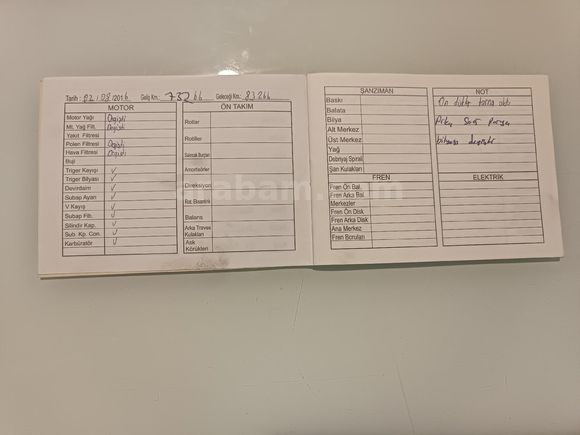 Tarih : 02 / 08 /2016 Geliş Km.: 73266 Geleceği Km.: 83266
MOTOR
Motor Yağı Değişti
Mt. Yağ Filt. Değişti
Yakıt Filtresi
Polen Filtresi Değişti
Hava Filtresi Değişti
Buji
Triger Kayışı ✓
Triger Bilyası ✓
Devirdaim ✓
Subap Ayarı ✓
V Kayış ✓
Subap Fitı. ✓
Silindir Kap. ✓
Sub. Kp. Con. ✓
Karbüratör ✓
ÖN TAKIM
Rotlar
Rotiller
Salıncak Burçları
Amortisörler
Direksiyon
Rot. Basetink
Balans
Arka Traves Kulakları
Ask Körükleri
ŞANZIMAN
Baskı
Balata
Bilya
Alt Merkez
Üst Merkez
Yağ
Debriyaj Spirali
Şan Kulakları
FREN
Fren Ön Bal.
Fren Arka Bal.
Merkezler
Fren Ön Disk
Fren Arka Disk
Ana Merkez
Fren Boruları
NOT
Ön diskler torna oldu
Arka
bilyası değişti
ELEKTRİK
arabam.com